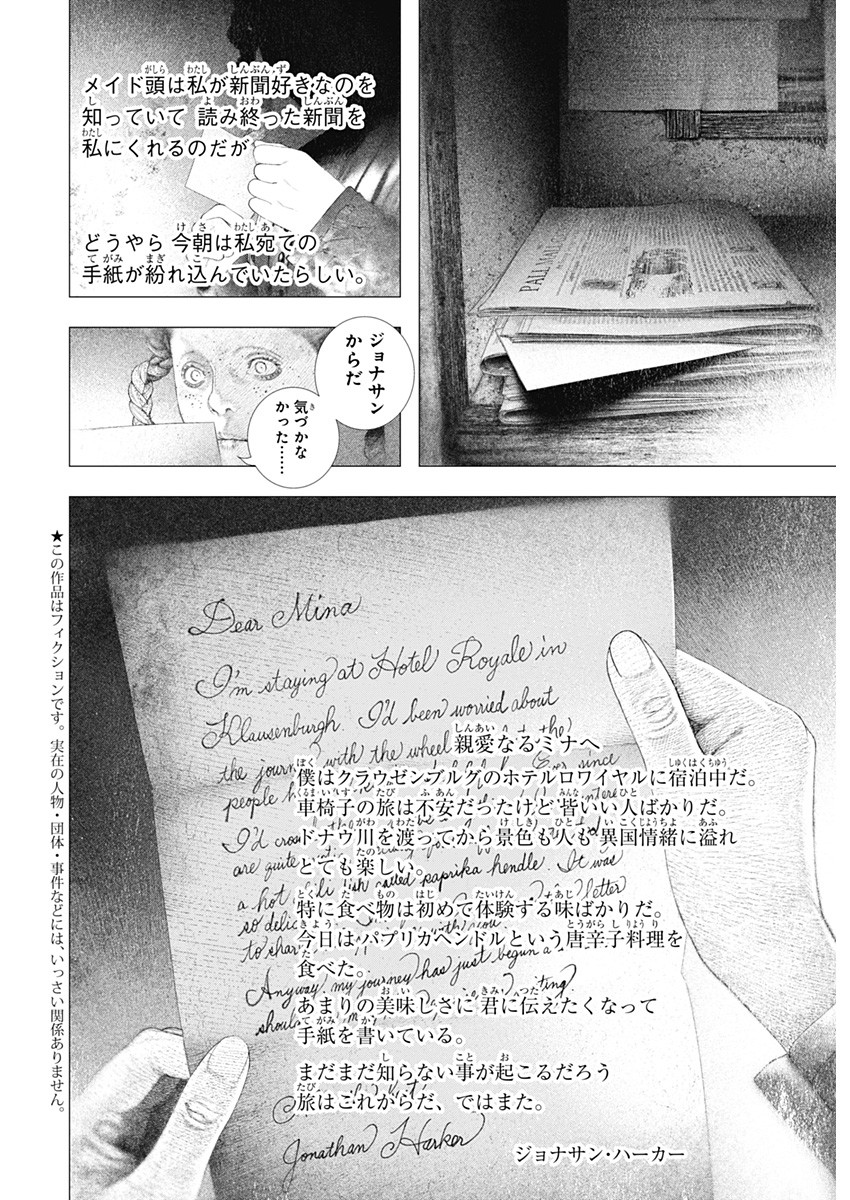 PALL MALL GAZ
メイド頭は私が新聞好きなのを
知っていて 読み終った新聞を
私にくれるのだが
どうやら 今朝は私宛ての
手紙が紛れ込んでいたらしい。
ジョナサン
からだ
気づかな
かった……
Dear Mina
I'm staying at Hotel Royale in
Klausenburgh. I'd been worried about
the journey with the wheel
people
since
I'd
are quite
a hot called paprika hendle. It was
so deli letter
to shar with you
Anyway, my journey has just begun
shou
Jonathan Harker
親愛なるミナへ
僕はクラウゼンブルグのホテルロワイヤルに宿泊中だ。
車椅子の旅は不安だったけど 皆いい人ばかりだ。
ドナウ川を渡ってから景色も人も異国情緒に溢れ
とても楽しい。
特に食べ物は初めて体験する味ばかりだ。
今日はパプリカヘンドルという唐辛子料理を
食べた。
あまりの美味しさに 君に伝えたくなって
手紙を書いている。
まだまだ知らない事が起こるだろう
旅はこれからだ、ではまた。
ジョナサン・ハーカー
★この作品はフィクションです。実在の人物・団体・事件などには、いっさい関係ありません。